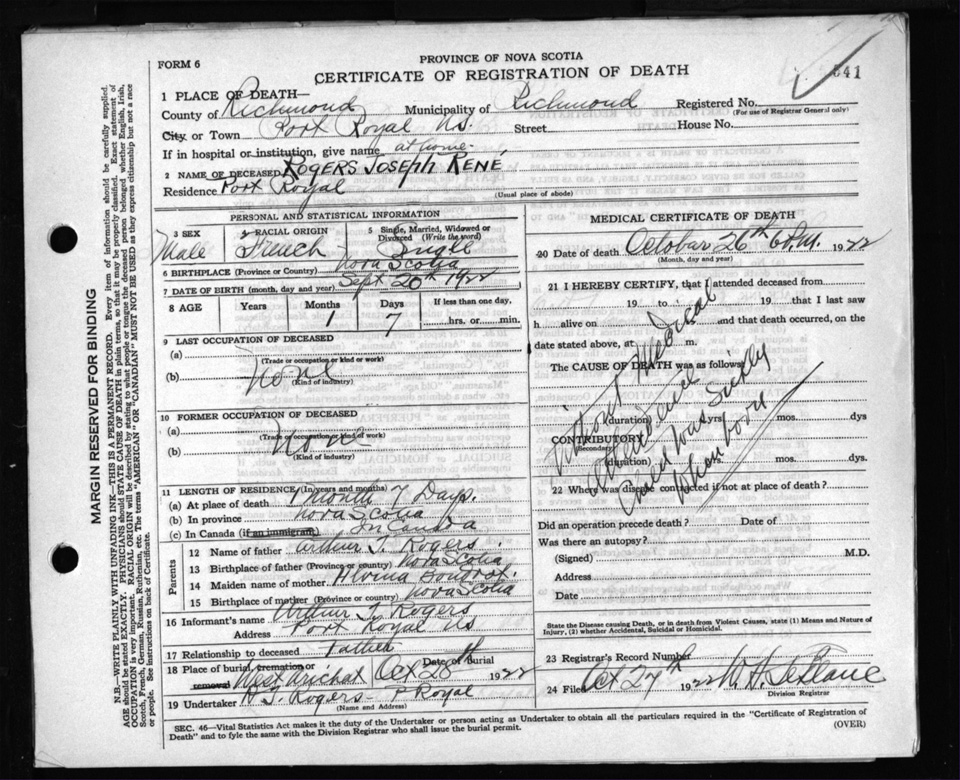 FORM 6
PROVINCE OF NOVA SCOTIA
CERTIFICATE OF REGISTRATION OF DEATH
541
1 PLACE OF DEATH—
County of Richmond Municipality of Richmond Registered No.
(For use of Registrar General only)
City or Town Port Royal N.S. Street House No.
If in hospital or institution, give name at home
2 NAME OF DECEASED ROGERS JOSEPH RENÉ
Residence Port Royal
(Usual place of abode)
PERSONAL AND STATISTICAL INFORMATION
3 SEX Male
4 RACIAL ORIGIN French
5 Single, Married, Widowed or Divorced (Write the word) Single
6 BIRTHPLACE (Province or Country) Nova Scotia
7 DATE OF BIRTH (month, day and year) Sept 20th 1922
8 AGE Years Months Days If less than one day.
1 7 hrs. or min.
9 LAST OCCUPATION OF DECEASED
(a)
(Trade or occupation or kind of work)
(b) None
(Kind of industry)
10 FORMER OCCUPATION OF DECEASED
(a)
(Trade or occupation or kind of work)
(b) None
(Kind of industry)
11 LENGTH OF RESIDENCE (In years and months)
(a) At place of death 1 Month 7 Days.
(b) In province Nova Scotia
(c) In Canada (if an immigrant) In Canada
Parents
12 Name of father Arthur J. Rogers
13 Birthplace of father (Province or country) Nova Scotia
14 Maiden name of mother Alvina
15 Birthplace of mother (Province or country) Nova Scotia
16 Informant's name Arthur J Rogers
Address Port Royal NS
17 Relationship to deceased Father
18 Place of burial, cremation or removal West Arichat Date of Burial Oct 28th 1922
19 Undertaker Rogers - P Royal
(Name and Address)
MEDICAL CERTIFICATE OF DEATH
20 Date of death October 26th 6 P.M. 1922
(Month, day and year)
21 I HEREBY CERTIFY, that I attended deceased from
19 to 19 that I last saw
h alive on and that death occurred, on the
date stated above, at m.
The CAUSE OF DEATH was as follows:
Without Medical
Attendance
was Sickly
When born
(duration) yrs. mos. dys
CONTRIBUTORY
(Secondary)
(duration) yrs. mos. dys.
22 Where was disease contracted if not at place of death?
Did an operation precede death? Date of
Was there an autopsy?
(Signed) M.D.
Address
Date
State the Disease causing Death, or in death from Violent Causes, state (1) Means and Nature of
Injury, (2) whether Accidental, Suicidal or Homicidal.
23 Registrar's Record Number
24 Filed Oct 27th 1922 W. H.
Division Registrar
SEC. 46—Vital Statistics Act makes it the duty of the Undertaker or person acting as Undertaker to obtain all the particulars required in the "Certificate of Registration of
Death" and to fyle the same with the Division Registrar who shall issue the burial permit.
(OVER)
MARGIN RESERVED FOR BINDING
N.B.—WRITE PLAINLY WITH UNFADING INK—THIS IS A PERMANENT RECORD. Every item of information should be carefully supplied.
AGE should be stated EXACTLY. PHYSICIANS should STATE CAUSE OF DEATH in plain terms, so that it may be properly classified. Exact statement of
OCCUPATION is very important. RACIAL ORIGIN will be described by stating to what people or tongue the deceased person belonged whether English, Irish,
Scotch, French, German, Russian, Ruthenian, etc. The terms "AMERICAN" or "CANADIAN" MUST NOT BE USED as they express citizenship but not a race
or people. See instructions on back of Certificate.